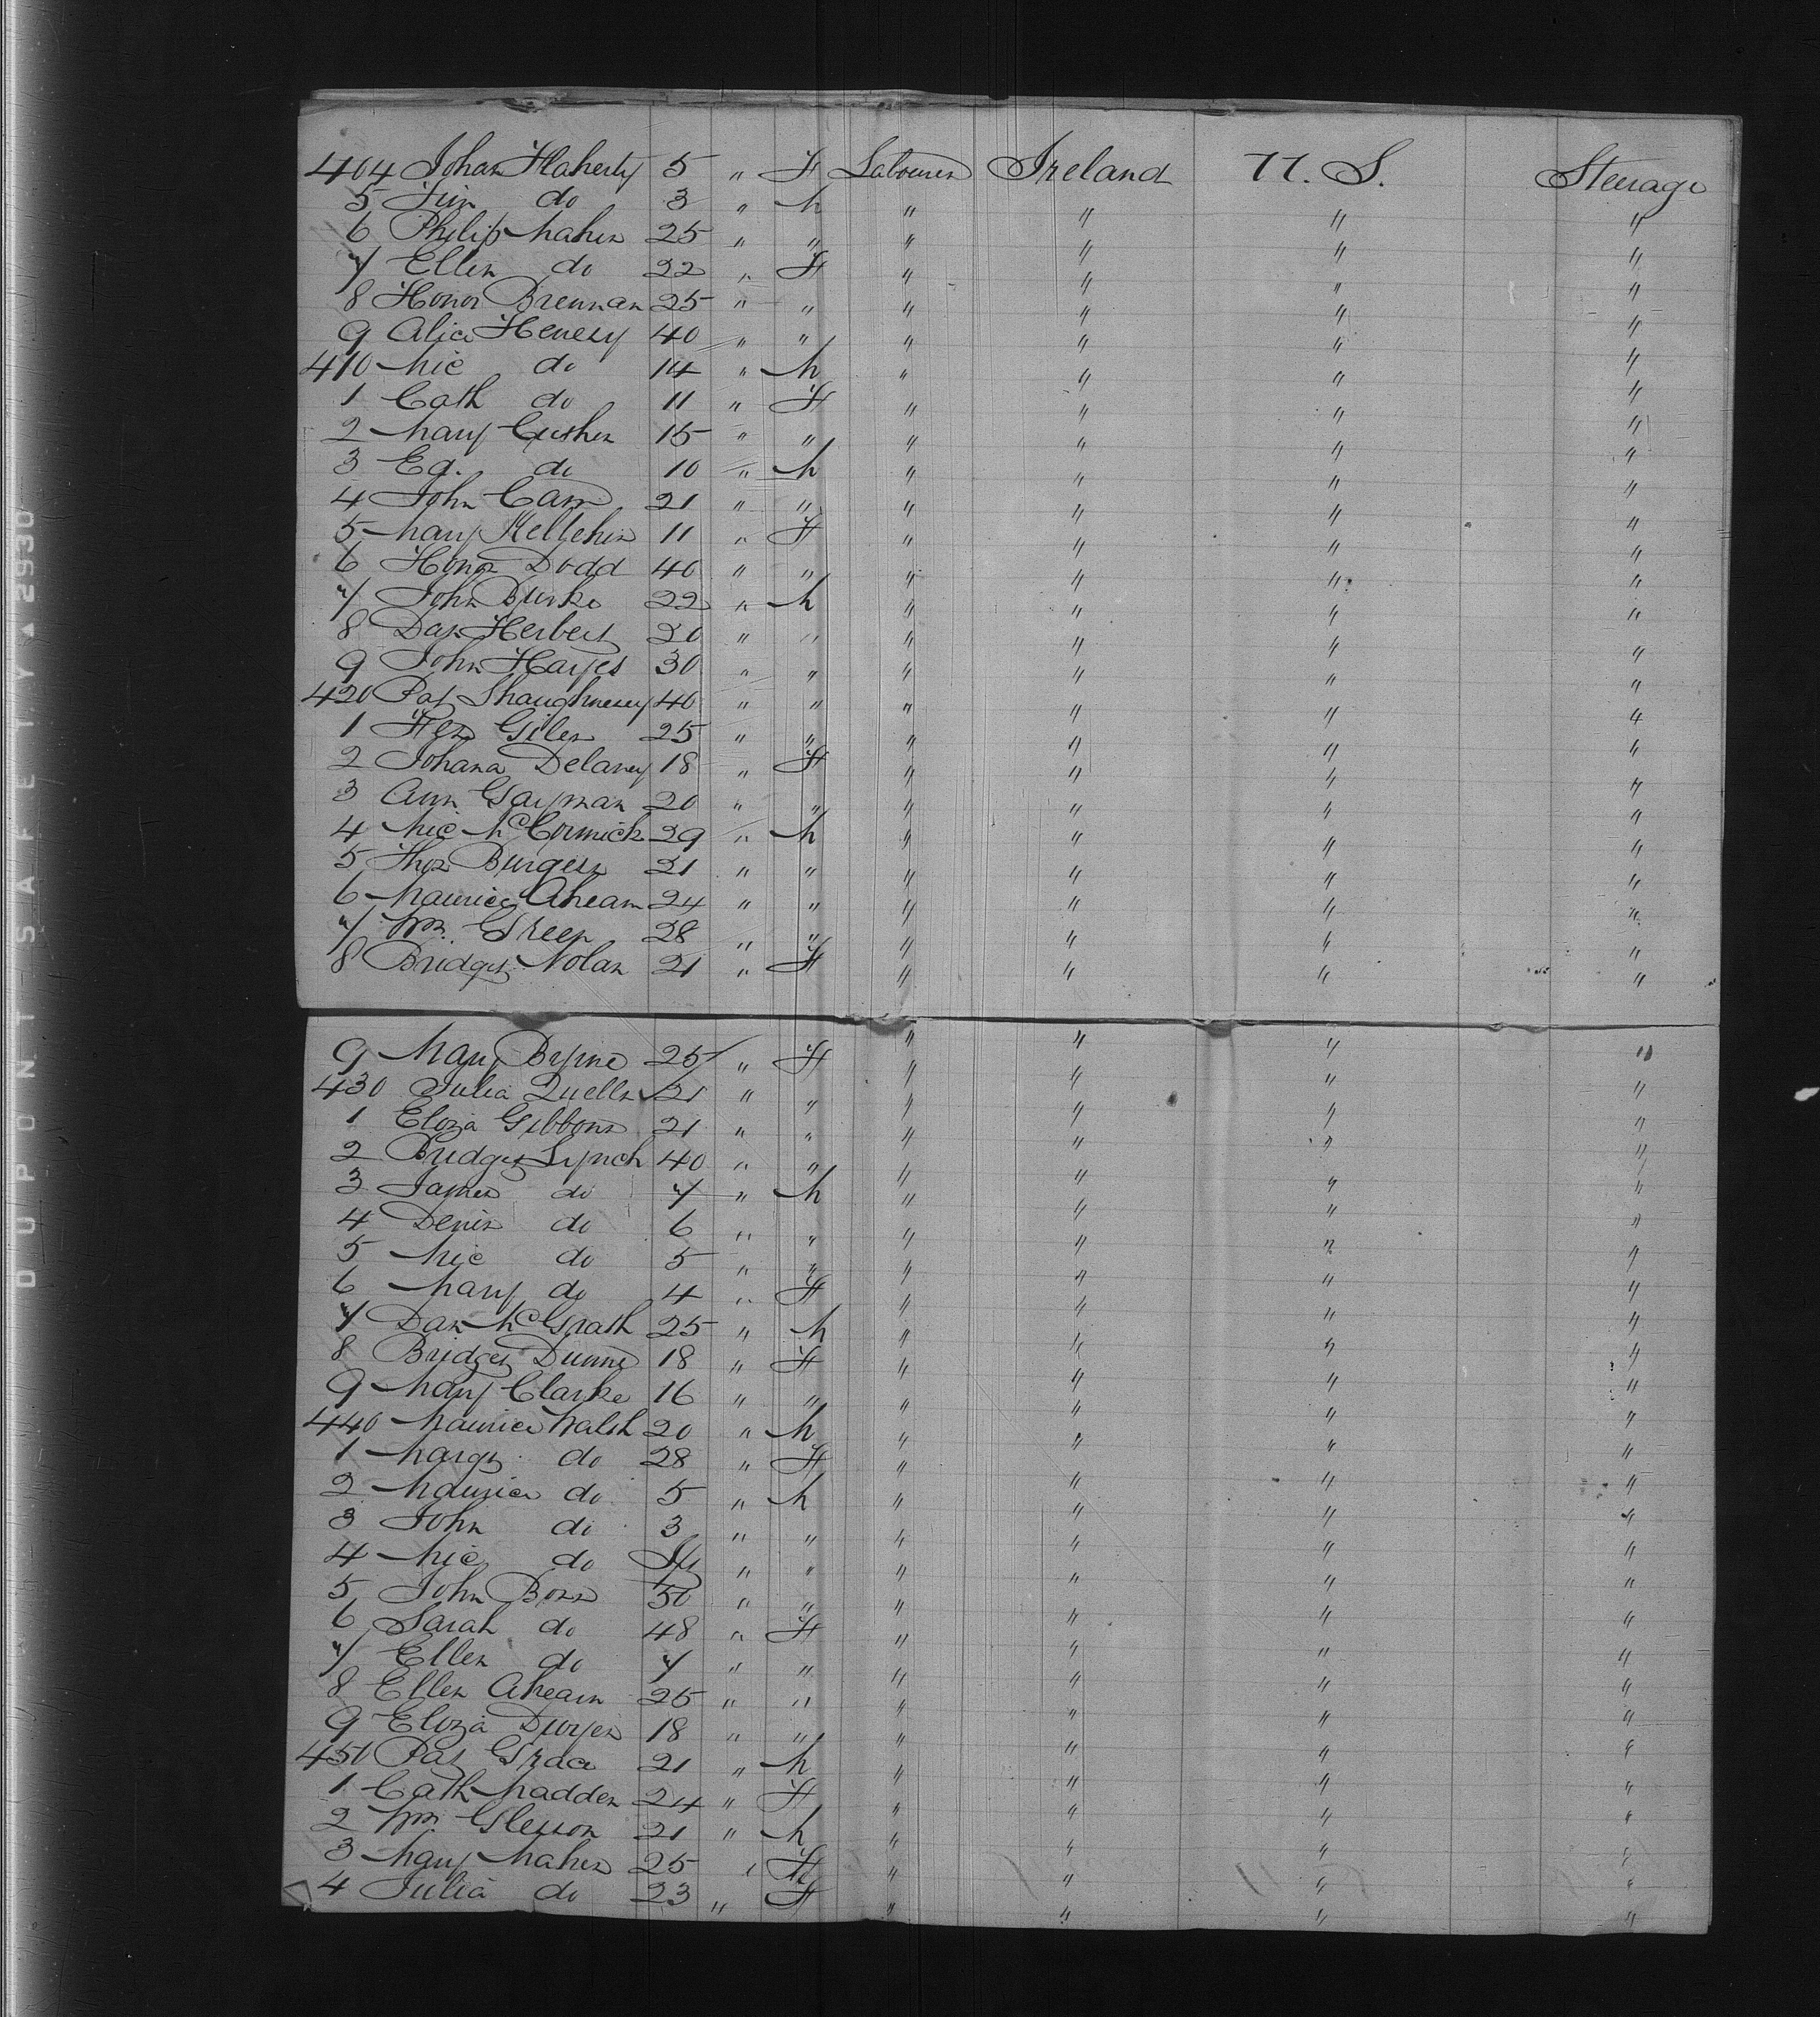 404 Johan Flaherty 5 " F Labourer Ireland U. S. Steerage
5 Jim do 3 " M " " " "
6 Philip Maher 25 " " " " " "
7 Ellen do 22 " F " " " "
8 Honor Brennan 25 " " " " " "
9 Alice Henesy 40 " " " " " "
410 Mic do 14 " M " " " "
1 Cath do 11 " F " " " "
2 Mary Cushen 15 " " " " " "
3 Ed. do 10 " M " " " "
4 John 21 " " " " " "
5 Mary Kellehin 11 " F " " " "
6 Honor Dodd 40 " " " " " "
7 John Burke 22 " M " " " "
8 Dan Herbert 20 " " " " " "
9 John Hayes 30 " " " " " "
420 Pat Shaughnessy 40 " " " " " "
1 Giles 25 " " " " " "
2 Johana Delaney 18 " F " " " "
3 Ann Gayman 20 " " " " " "
4 Mic McCormick 29 " M " " " "
5 Thos Burgess 21 " " " " " "
6 Maurice Ahearn 24 " " " " " "
7 Wm. Green 28 " " " " " "
8 Bridget Nolan 21 " F " " " "
9 Mary Byrne 25 " F " " " "
430 Julia Quelln 21 " " " " " "
1 Eliza Gibbons 21 " " " " " "
2 Bridget Lynch 40 " " " " " "
3 James do 7 " M " " " "
4 Denis do 6 " " " " " "
5 Mic do 5 " " " " " "
6 Mary do 4 " F " " " "
7 Dan McGrath 25 " M " " " "
8 Bridget Dunne 18 " F " " " "
9 Mary Clarke 16 " " " " " "
440 Maurice Walsh 20 " M " " " "
1 Margt. do 28 " F " " " "
2 Maurice do 5 " M " " " "
3 John do 3 " " " " " "
4 Mic do " " " " " "
5 John Boss 50 " " " " " "
6 Sarah do 48 " F " " " "
7 Ellen do 7 " " " " " "
8 Ellen Ahearn 25 " " " " " "
9 Eliza Dwyer 18 " " " " " "
450 Pat Grace 21 " M " " " "
1 Cath Madden 24 " F " " " "
2 Wm. Glesson 21 " M " " " "
3 Mary Maher 25 " F " " " "
4 Julia do 23 " F " " " "
DUPONT SAFETY ▲ 2930